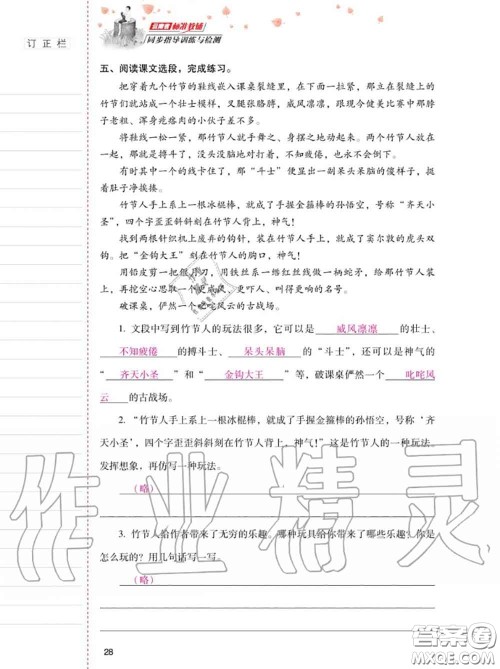 订正栏
云南省标准教辅
同步指导训练与检测
五、阅读课文选段，完成练习。
把穿着九个竹节的鞋线嵌入课桌裂缝里，在下面一拉紧，那立在裂缝上的竹节们就站成一个壮士模样，叉腿张胳膊，威风凛凛，跟现今健美比赛中那脖子老粗、浑身疙瘩肉的小伙子差不多。
将鞋线一松一紧，那竹节人就手舞之、身摆之地动起来。两个竹节人放在一起，那就是搏斗了，没头没脑地对打着，不知疲倦，也永不会倒下。
有时其中一个的线卡住了，那“斗士”便显出一副呆头呆脑的傻样子，挺着肚子净挨揍。
竹节人手上系上一根冰棍棒，就成了手握金箍棒的孙悟空，号称“齐天小圣”，四个字歪歪斜斜刻在竹节人背上，神气！
找到两根针织机上废弃的钩针，装在竹节人手上，就成了窦尔敦的虎头双钩。把“金钩大王”刻在竹节人的胸口，神气！
用铅皮剪一把偃月刀，用铁丝系一绺红丝线做一柄蛇矛，给那竹节人装上，再挖空心思取一个更威风、更吓人、叫得更响的名号。
破课桌，俨然一个叱咤风云的古战场。
1. 文段中写到竹节人的玩法很多，它可以是 威风凛凛 的壮士、
不知疲倦 的搏斗士、 呆头呆脑 的“斗士”，还可以是神气的
“ 齐天小圣 ”和“ 金钩大王 ”等，破课桌俨然一个 叱咤风
云 的古战场。
2. “竹节人手上系上一根冰棍棒，就成了手握金箍棒的孙悟空，号称‘齐
天小圣’，四个字歪歪斜斜刻在竹节人背上，神气！”这是竹节人的一种玩法。
发挥想象，再仿写一种玩法。
（略）
3. 竹节人给作者带来了无穷的乐趣。哪种玩具给你带来了哪些乐趣？你是
怎么玩的？用几句话写一写。
（略）
28
作业精灵
答案圈
MXQE.COM